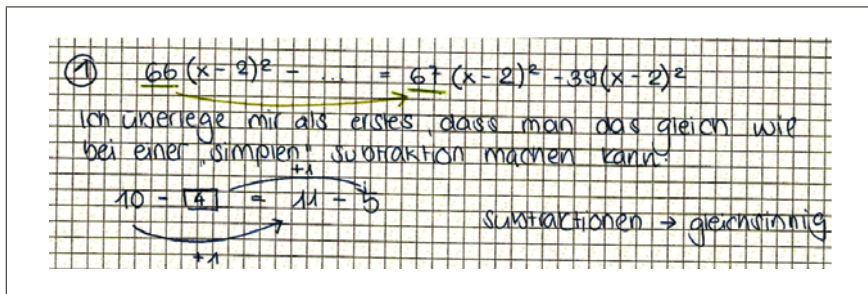 ① 66(x-2)² - ... = 67(x-2)² -39(x-2)²
Ich überlege mir als erstes, dass man das gleich wie
bei einer „simplen" Subtraktion machen kann:
+1
10 - 4 = 11 - 5
subtraktionen → gleichsinnig
+1